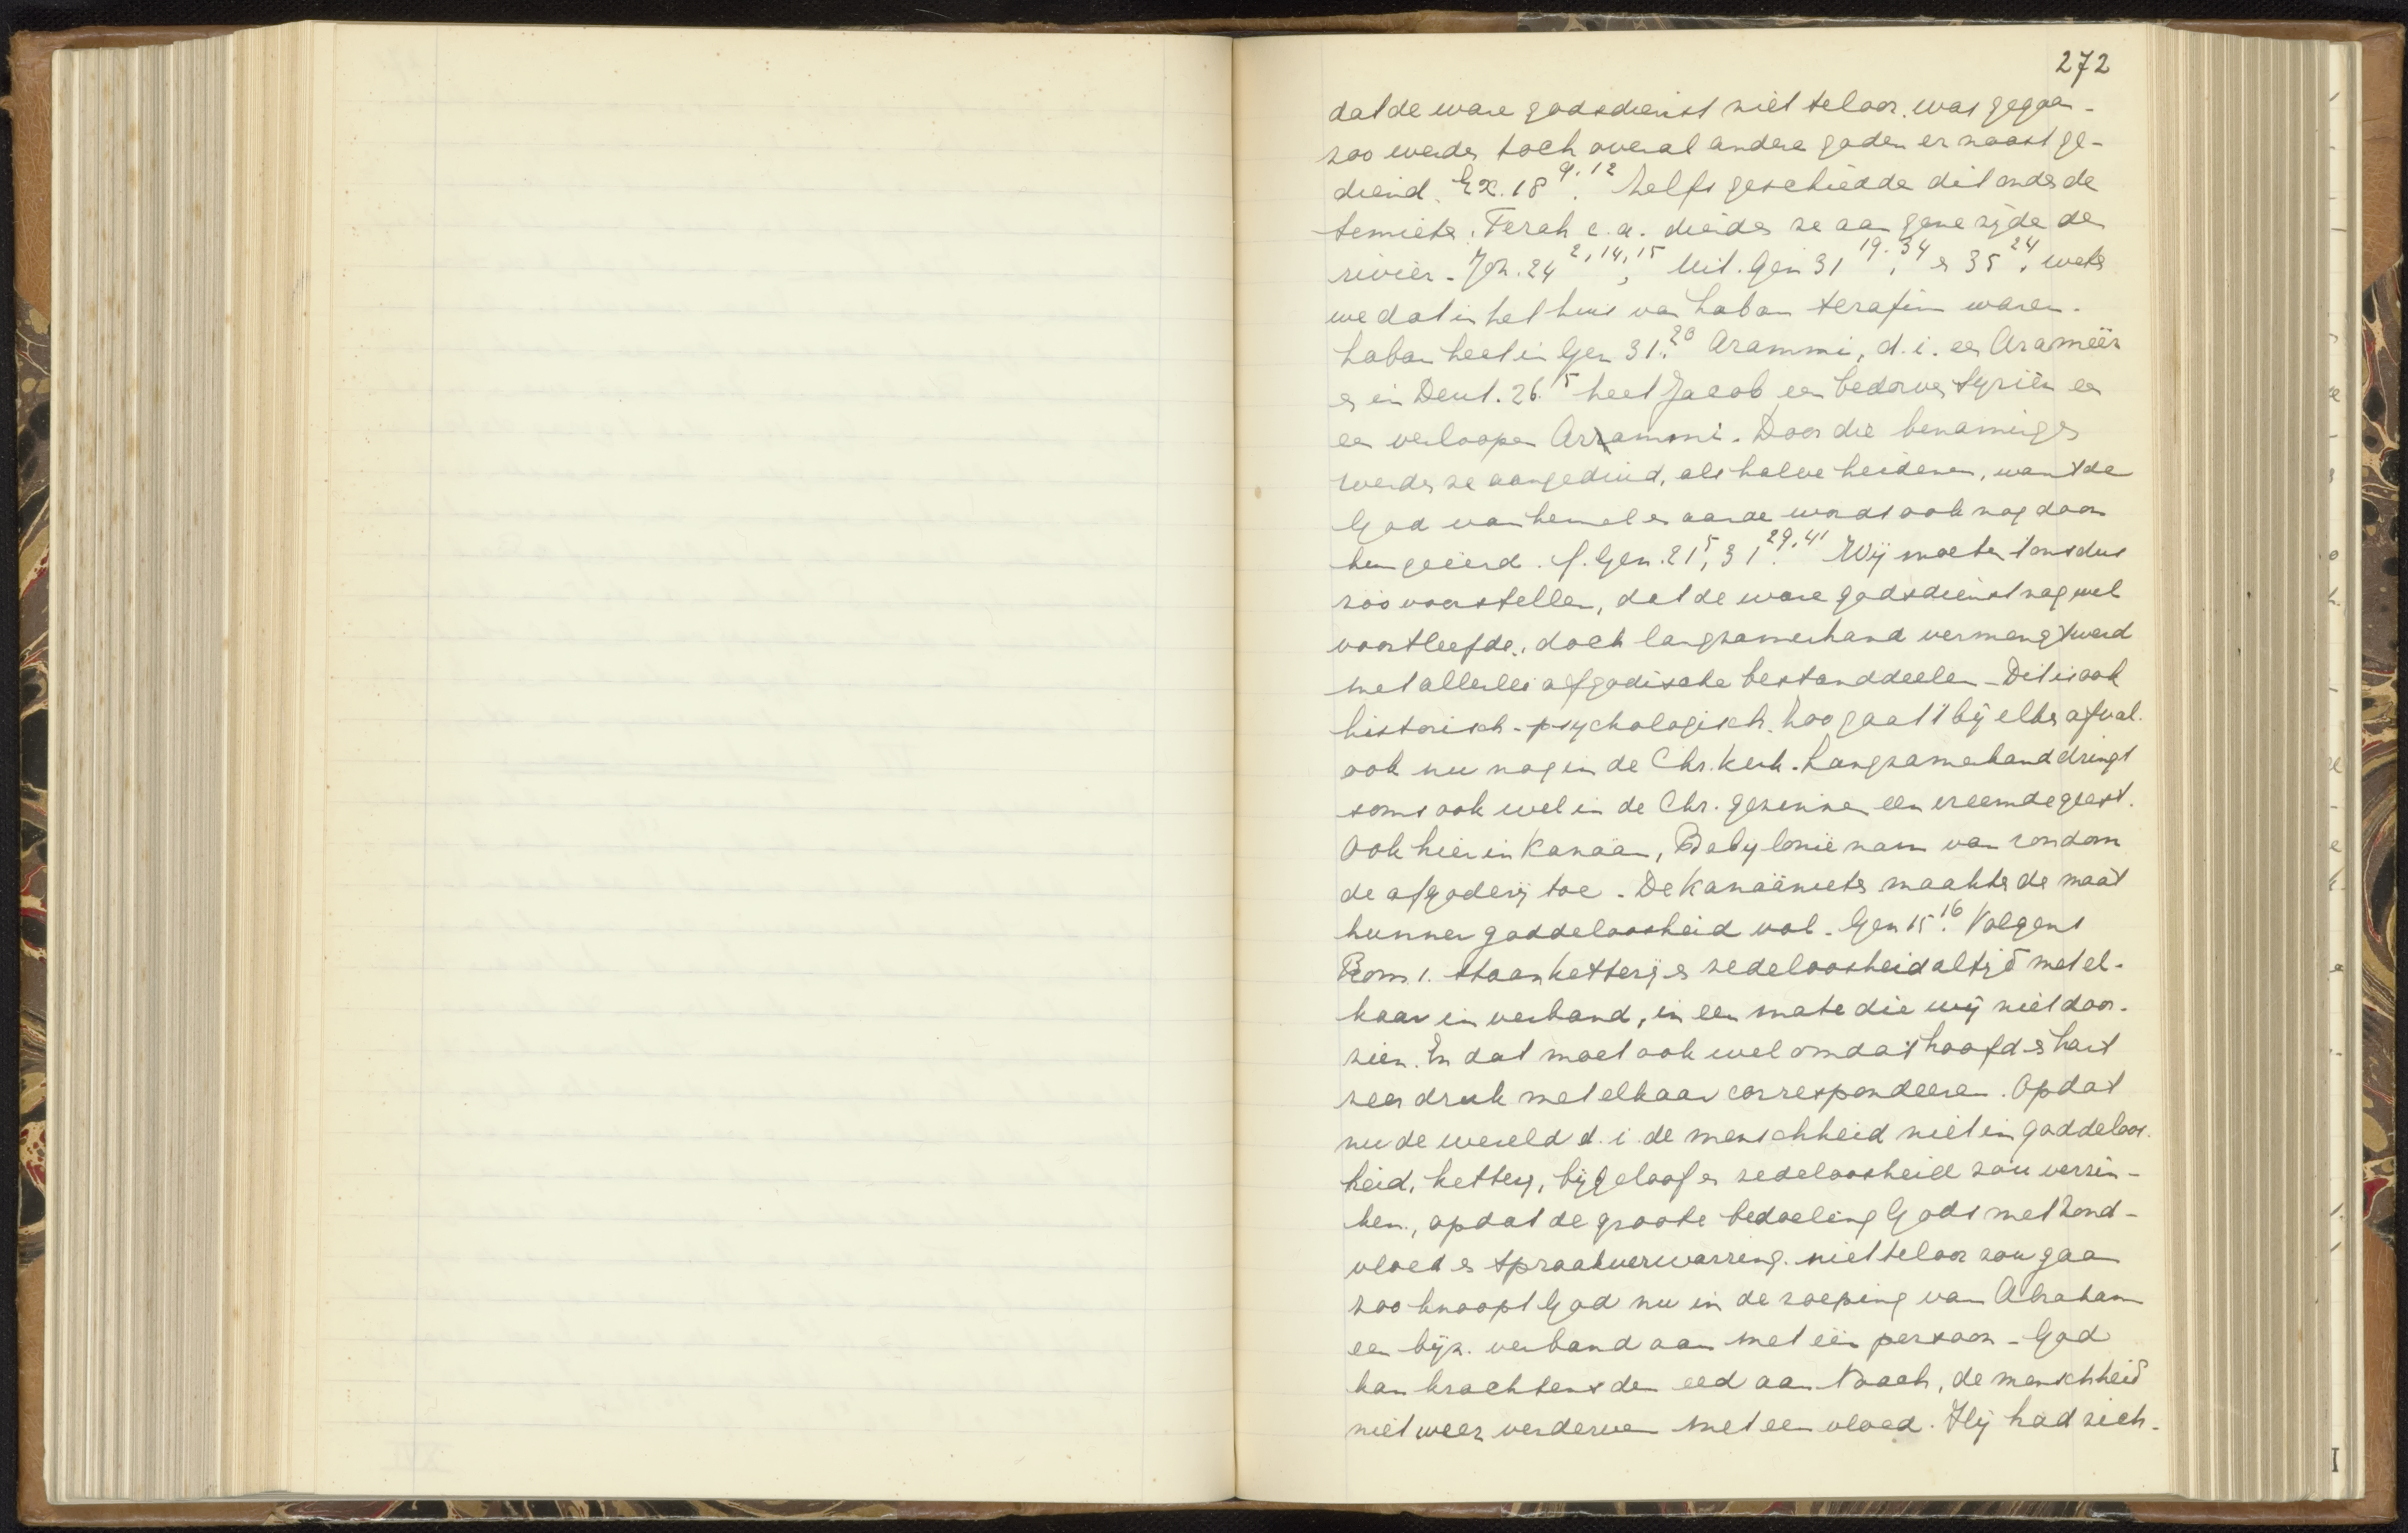 272
dat de ware godsdienst niet teloor was gegaan.
zoo werden toch overal andere goden er naast ge-
diend. Ex. 18 9.12. Zelfs geschiedde dit onder de
Semieten. Terah e.a. dienden ze aan gene zijde der
rivier. Joz. 24 2,14,15; Uit Gen 31 19.34 en 35 24. weten
we dat in het huis van Laban terafim waren.
Laban heet in Gen 31.20 Arammi, d.i. een Arameër
en in Deut. 26.5 heet Jacob een bedorven Syriër en
een verloopen Arrammi. Door die benamingen
werden ze aangeduid, als halve heidenen, want de
God van hemel en aarde wordt ook nog door
hen geëerd. cf. Gen. 21 5, 31 29.41. Wij moeten 't ons dus
zóó voorstellen, dat de ware godsdienst nog wel
voortleefde, doch langzamerhand vermengd werd
met allerlei afgodische bestanddeelen - Dit is ook
historisch-psychologisch. Zoo gaat 't bij elken afval.
ook nu nog in de Chr. Kerk. Langzamerhand dringt
soms ook wel in de Chr. gezinnen een vreemde geest.
Ook hier in Kanaän, Babylonië nam van rondom
de afgoderij toe. De Kanaänieten maakten de maat
hunner goddeloosheid vol. Gen 15.16 Volgens
Rom 1. staan ketterij en zedeloosheid altijd met el-
kaar in verband, in een mate die wij niet door-
zien. En dat moet ook wel omdat hoofd en hart
zeer druk met elkaar correspondeeren. Opdat
nu de wereld d.i. de menschheid niet in goddeloos-
heid, ketterij, bijgeloof en zedeloosheid zou verzin-
ken, opdat de groote bedoeling Gods met zond-
vloed en spraakverwarring niet teloor zou gaan
zoo knoopt God nu in de roeping van Abraham
een bijz. verband aan met één persoon - God
kan krachtens den eed aan Noach, de menschheid
niet weer verderven met een vloed. Hij had zich-